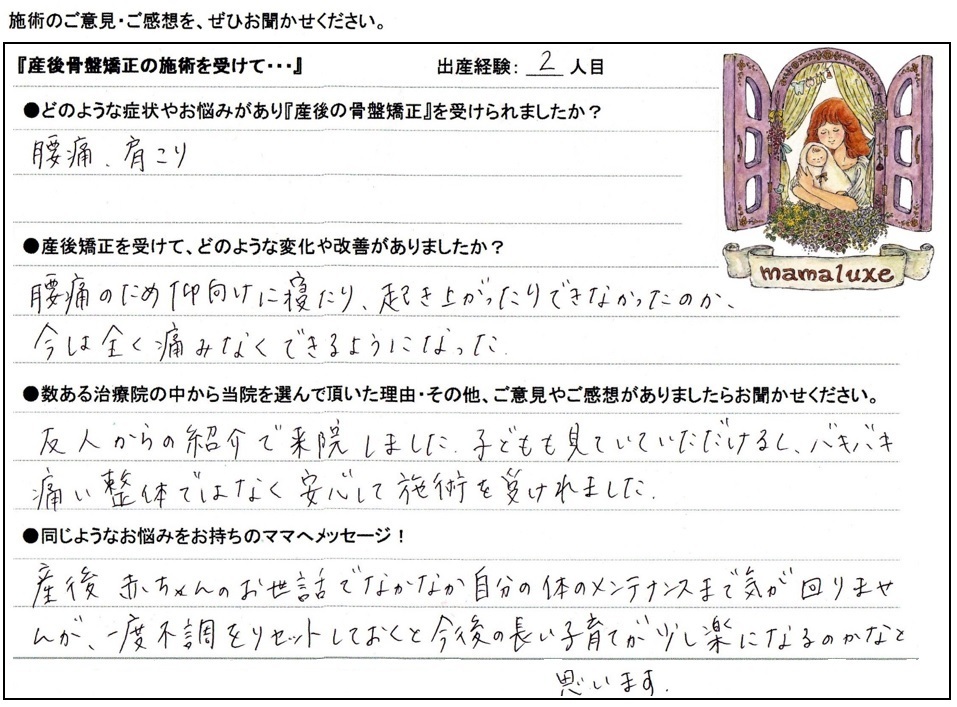 施術のご意見・ご感想を、ぜひお聞かせください。
『産後骨盤矯正の施術を受けて・・・』 出産経験： 2 人目
●どのような症状やお悩みがあり『産後の骨盤矯正』を受けられましたか？
腰痛、肩こり
●産後矯正を受けて、どのような変化や改善がありましたか？
mamaluxe
腰痛のため仰向けに寝たり、起き上がったりできなかったのが、
今は全く痛みなくできるようになった.
●数ある治療院の中から当院を選んで頂いた理由・その他、ご意見やご感想がありましたらお聞かせください。
友人からの紹介で来院しました.子どもも見ていていただけるし、バキバキ
痛い整体ではなく安心して施術を受けれました.
●同じようなお悩みをお持ちのママへメッセージ！
産後 赤ちゃんのお世話でなかなか自分の体のメンテナンスまで気が回りませ
んが、一度不調をリセットしておくと今後の長い子育てが少し楽になるのかなと
思います.